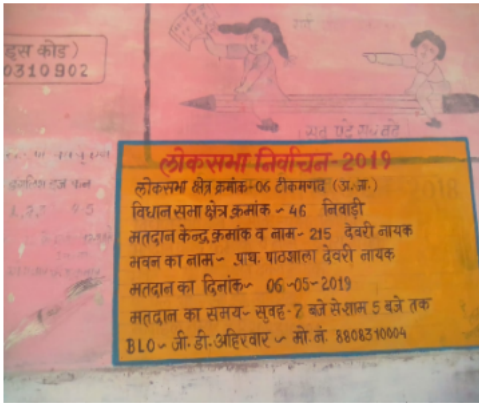 डाइस कोड)
0310902
(सब पढ़े सब बढ़े)
लोकसभा निर्वाचन-2019
लोकसभा क्षेत्र क्रमांक-06 टीकमगढ़ (अ.जा.)
विधान सभा क्षेत्र क्रमांक - 46 निवाड़ी
मतदान केन्द्र क्रमांक व नाम- 215 देवरी नायक
भवन का नाम- प्राथ. पाठशाला देवरी नायक
मतदान का दिनांक- 06-05-2019
मतदान का समय- सुवह-7 बजे से शाम 5 बजे तक
BLO- जी.डी. अहिरवार- मो.नं. 8808310004